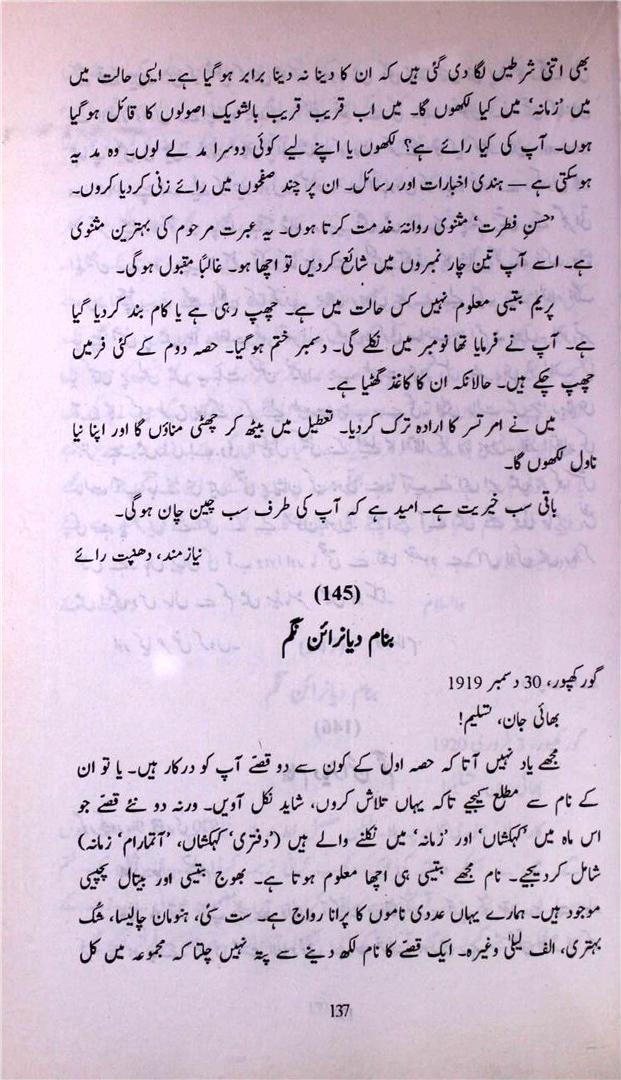 بھی اتنی شرطیں لگا دی گئی ہیں کہ ان کا دینا نہ دینا برابر ہوگیا ہے۔ ایسی حالت میں
میں ’زمانہ‘ میں کیا لکھوں گا۔ میں اب قریب قریب بالشویک اصولوں کا قائل ہوگیا
ہوں۔ آپ کی کیا رائے ہے؟ لکھوں یا اپنے لیے کوئی دوسرا مد لے لوں۔ وہ مد یہ
ہوسکتی ہے — ہندی اخبارات اور رسائل۔ ان پر چند صفحوں میں رائے زنی کردیا کروں۔
’حسنِ فطرت‘ مثنوی روانۂ خدمت کرتا ہوں۔ یہ عبرت مرحوم کی بہترین مثنوی
ہے۔ اسے آپ تین چار نمبروں میں شائع کردیں تو اچھا ہو۔ غالباً مقبول ہوگی۔
پریم بتیسی معلوم نہیں کس حالت میں ہے۔ چھپ رہی ہے یا کام بند کردیا گیا
ہے۔ آپ نے فرمایا تھا نومبر میں نکلے گی۔ دسمبر ختم ہوگیا۔ حصہ دوم کے کئی فرمیں
چھپ چکے ہیں۔ حالانکہ ان کا کاغذ گھٹیا ہے۔
میں نے امرتسر کا ارادہ ترک کردیا۔ تعطیل میں بیٹھ کر چھٹی مناؤں گا اور اپنا نیا
ناول لکھوں گا۔
باقی سب خیریت ہے۔ امید ہے کہ آپ کی طرف سب چین چان ہوگی۔
نیازمند، دھنپت رائے
(145)
بنام دیانرائن نگم
گورکھپور، 30 دسمبر 1919
بھائی جان، تسلیم!
مجھے یاد نہیں آتا کہ حصہ اول کے کون سے دو قصّے آپ کو درکار ہیں۔ یا تو ان
کے نام سے مطلع کیجیے تاکہ یہاں تلاش کروں، شاید نکل آویں۔ ورنہ دو نئے قصّے جو
اس ماہ میں ’کہکشاں‘ اور ’زمانہ‘ میں نکلنے والے ہیں (’دفتری‘ کہکشاں، ’آتمارام‘ زمانہ)
شامل کردیجیے۔ نام مجھے بتیسی ہی اچھا معلوم ہوتا ہے۔ بھوج بتیسی اور بیتال پچیسی
موجود ہیں۔ ہمارے یہاں عددی ناموں کا پرانا رواج ہے۔ ست سئی، ہنومان چالیسا، شک
بہتری، الف لیلیٰ وغیرہ۔ ایک قصّے کا نام لکھ دینے سے پتہ نہیں چلتا کہ مجموعہ میں کل
137